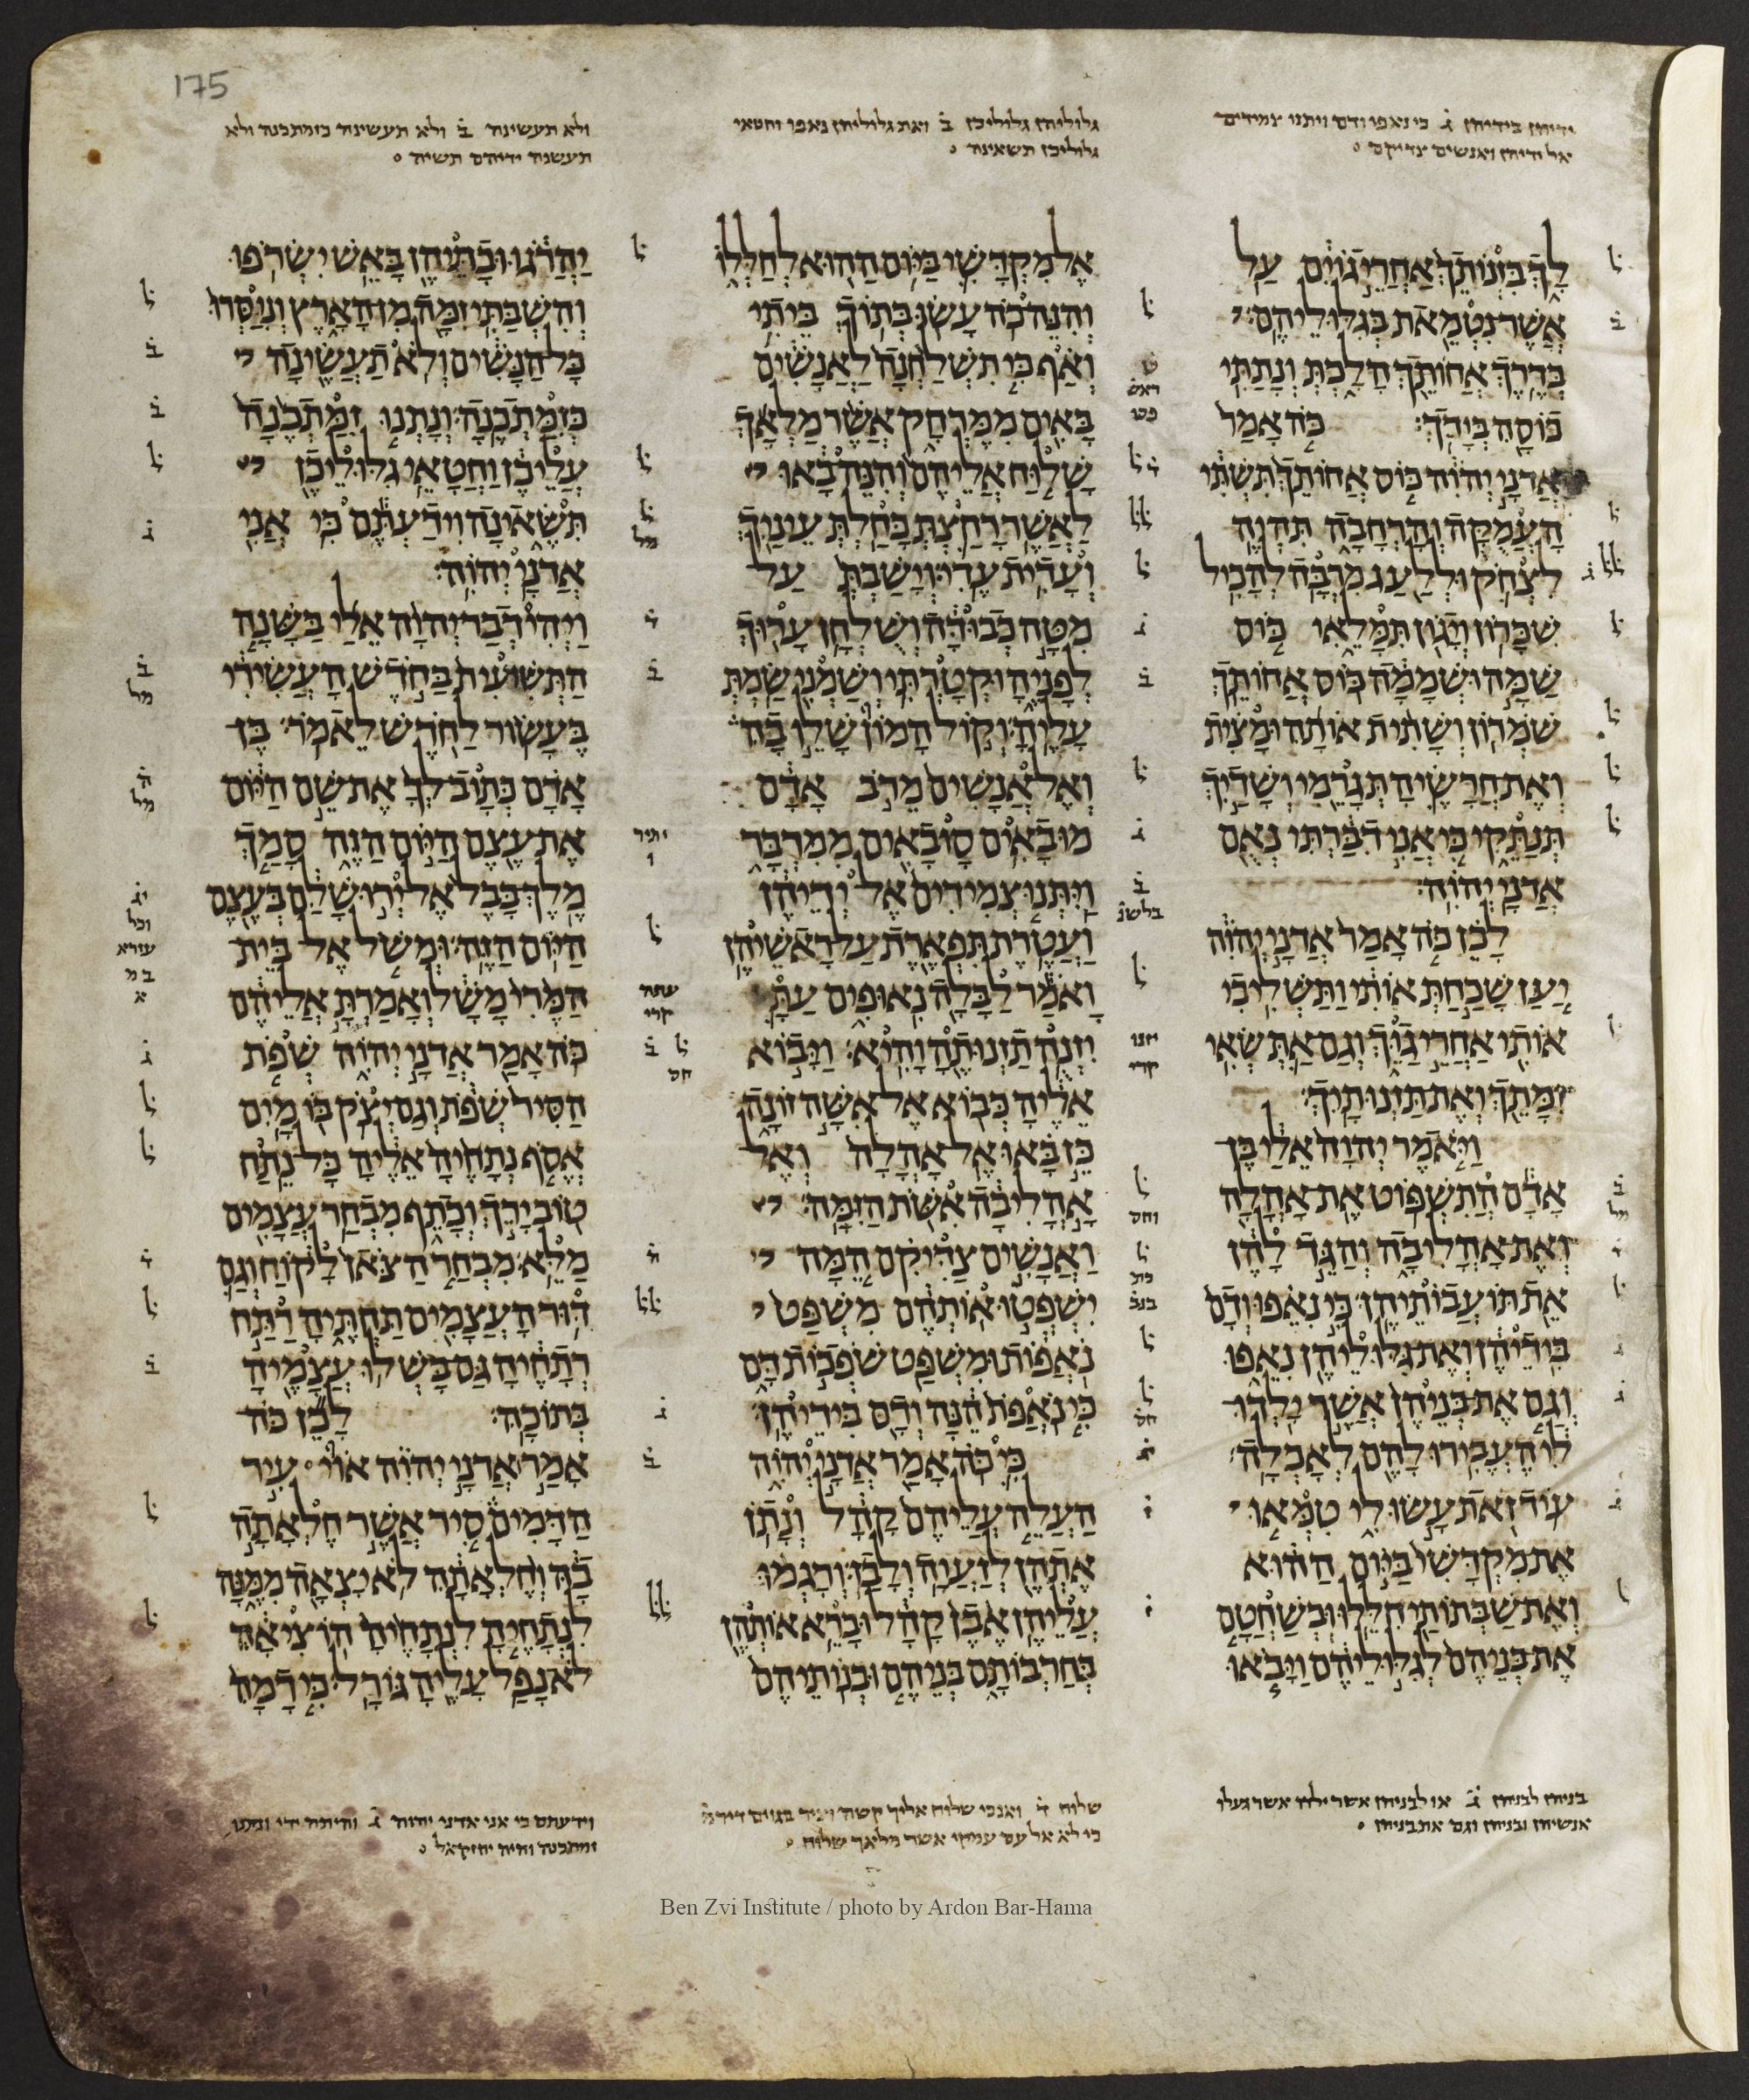 175
ידיהן בידיהן ג̇ כי נאפו ודם ויתנו צמידים
אל ידיהן ואנשים צדיקם
גלוליהן גלוליכן ב̇ ואת גלוליהן נאפו וחטאי
גלוליכן תשאינה
ולא תעשינה ב̇ ולא תעשינה כזמתכנה ולא
תעשנה ידיהם תשיה
לָךְ בִּזְנוֹתֵךְ אַחֲרֵי גוֹיִם עַל
אֲשֶׁר נִטְמֵאת בְּגִלּוּלֵיהֶם׃
בְּדֶרֶךְ אֲחוֹתֵךְ הָלָכְתְּ וְנָתַתִּי
כוֹסָהּ בְּיָדֵךְ׃ כֹּה אָמַר
אֲדֹנָי יְהוִה כּוֹס אֲחוֹתֵךְ תִּשְׁתִּי
הָעֲמֻקָּה וְהָרְחָבָה תִּהְיֶה
לִצְחֹק וּלְלַעַג מִרְבָּה לְהָכִיל
שִׁכָּרוֹן וְיָגוֹן תִּמָּלֵאִי כּוֹס
שַׁמָּה וּשְׁמָמָה כּוֹס אֲחוֹתֵךְ
שֹׁמְרוֹן וְשָׁתִית אוֹתָהּ וּמָצִית
וְאֶת חֲרָשֶׂיהָ תְּגָרֵמִי וְשָׁדַיִךְ
תְּנַתֵּקִי כִּי אֲנִי דִבַּרְתִּי נְאֻם
אֲדֹנָי יְהוִה׃
לָכֵן כֹּה אָמַר אֲדֹנָי יְהוִה
יַעַן שָׁכַחַתְּ אוֹתִי וַתַּשְׁלִיכִי
אוֹתִי אַחֲרֵי גַוֵּךְ וְגַם אַתְּ שְׂאִי
זִמָּתֵךְ וְאֶת תַּזְנוּתָיִךְ׃
וַיֹּאמֶר יְהוָה אֵלַי בֶּן
אָדָם הֲתִשְׁפּוֹט אֶת אָהֳלָה
וְאֶת אָהֳלִיבָה וְהַגֵּד לָהֶן
אֵת תּוֹעֲבוֹתֵיהֶן׃ כִּי נִאֵפוּ וְדָם
בִּידֵיהֶן וְאֶת גִּלּוּלֵיהֶן נִאֵפוּ
וְגַם אֶת בְּנֵיהֶן אֲשֶׁר יָלְדוּ
לִי הֶעֱבִירוּ לָהֶם לְאָכְלָה׃
עוֹד זֹאת עָשׂוּ לִי טִמְּאוּ
אֶת מִקְדָּשִׁי בַּיּוֹם הַהוּא
וְאֶת שַׁבְּתוֹתַי חִלֵּלוּ׃ וּבְשַׁחֲטָם
אֶת בְּנֵיהֶם לְגִלּוּלֵיהֶם וַיָּבֹאוּ
אֶל מִקְדָּשִׁי בַּיּוֹם הַהוּא לְחַלְּלוֹ
וְהִנֵּה כֹה עָשׂוּ בְּתוֹךְ בֵּיתִי׃
וְאַף כִּי תִשְׁלַחְנָה לַאֲנָשִׁים
בָּאִים מִמֶּרְחָק אֲשֶׁר מַלְאָךְ
שָׁלוּחַ אֲלֵיהֶם וְהִנֵּה בָאוּ
לַאֲשֶׁר רָחַצְתְּ כָּחַלְתְּ עֵינַיִךְ
וְעָדִית עֶדִי׃ וְיָשַׁבְתְּ עַל
מִטָּה כְבוּדָּה וְשֻׁלְחָן עָרוּךְ
לְפָנֶיהָ וּקְטָרְתִּי וְשַׁמְנִי שַׂמְתְּ
עָלֶיהָ׃ וְקוֹל הָמוֹן שָׁלֵו בָהּ
וְאֶל אֲנָשִׁים מֵרֹב אָדָם
מוּבָאִים סָובָאִים מִמִּדְבָּר
וַיִּתְּנוּ צְמִידִים אֶל יְדֵיהֶן
וַעֲטֶרֶת תִּפְאֶרֶת עַל רָאשֵׁיהֶן׃
וָאֹמַר לַבָּלָה נִאוּפִים עַתָּ
יִזְנֶה תַזְנוּתֶהָ וָהִיא׃ וַיָּבוֹא
אֵלֶיהָ כְּבוֹא אֶל אִשָּׁה זוֹנָה
כֵּן בָּאוּ אֶל אָהֳלָה וְאֶל
אָהֳלִיבָה אִשֹּׁת הַזִּמָּה׃
וַאֲנָשִׁים צַדִּיקִם הֵמָּה
יִשְׁפְּטוּ אוֹתְהֶם מִשְׁפַּט
נֹאֲפוֹת וּמִשְׁפַּט שֹׁפְכוֹת דָּם
כִּי נֹאֲפֹת הֵנָּה וְדָם בִּידֵיהֶן׃
כִּי כֹּה אָמַר אֲדֹנָי יְהוִה
הַעֲלֵה עֲלֵיהֶם קָהָל וְנָתֹן
אֶתְהֶן לְזַעֲוָה וְלָבַז׃ וְרָגְמוּ
עֲלֵיהֶן אֶבֶן קָהָל וּבָרֵא אוֹתְהֶן
בְּחַרְבוֹתָם בְּנֵיהֶם וּבְנוֹתֵיהֶם
יַהֲרֹגוּ וּבָתֵּיהֶן בָּאֵשׁ יִשְׂרֹפוּ׃
וְהִשְׁבַּתִּי זִמָּה מִן הָאָרֶץ וְנִוַּסְּרוּ
כָּל הַנָּשִׁים וְלֹא תַעֲשֶׂינָה
כְּזִמַּתְכֶנָה׃ וְנָתְנוּ זִמַּתְכֶנָה
עֲלֵיכֶן וַחֲטָאֵי גִלּוּלֵיכֶן
תִּשֶּׂאינָה וִידַעְתֶּם כִּי אֲנִי
אֲדֹנָי יְהוִה׃
וַיְהִי דְבַר יְהוָה אֵלַי בַּשָּׁנָה
הַתְּשִׁיעִית בַּחֹדֶשׁ הָעֲשִׂירִי
בֶּעָשׂוֹר לַחֹדֶשׁ לֵאמֹר׃ בֶּן
אָדָם כְּתָוב לְךָ אֶת שֵׁם הַיּוֹם
אֶת עֶצֶם הַיּוֹם הַזֶּה סָמַךְ
מֶלֶךְ בָּבֶל אֶל יְרוּשָׁלִַם בְּעֶצֶם
הַיּוֹם הַזֶּה׃ וּמְשֹׁל אֶל בֵּית
הַמֶּרִי מָשָׁל וְאָמַרְתָּ אֲלֵיהֶם
כֹּה אָמַר אֲדֹנָי יְהוִה שְׁפֹת
הַסִּיר שְׁפֹת וְגַם יְצֹק בּוֹ מָיִם׃
אֱסֹף נְתָחֶיהָ אֵלֶיהָ כָּל נֵתַח
טוֹב יָרֵךְ וְכָתֵף מִבְחַר עֲצָמִים
מַלֵּא׃ מִבְחַר הַצֹּאן לָקוֹחַ וְגַם
דּוּר הָעֲצָמִים תַּחְתֶּיהָ רַתַּח
רְתָחֶיהָ גַּם בָּשְׁלוּ עֲצָמֶיהָ
בְּתוֹכָהּ׃ לָכֵן כֹּה
אָמַר אֲדֹנָי יְהוִה אוֹי עִיר
הַדָּמִים סִיר אֲשֶׁר חֶלְאָתָה
בָהּ וְחֶלְאָתָהּ לֹא יָצְאָה מִמֶּנָּה
לִנְתָחֶיהָ לִנְתָחֶיהָ הוֹצִיאָהּ
לֹא נָפַל עָלֶיהָ גּוֹרָל׃ כִּי דָמָהּ
בניהן לבניהן ג̇ או לבניהן אשר ילדו אשר געלו
אנשיהן ובניהן וגם את בניהן
שלוח ד̇ ואנכי שלוח אליך קשה וציר בגוים
כי לא אל עם עמקי אשר מלאך שלוח
וידעתם כי אני אדני יהוה ג̇ והיתה ידי ונתנו
זמתכנה והיה יחזקאל
Ben Zvi Institute / photo by Ardon Bar-Hama